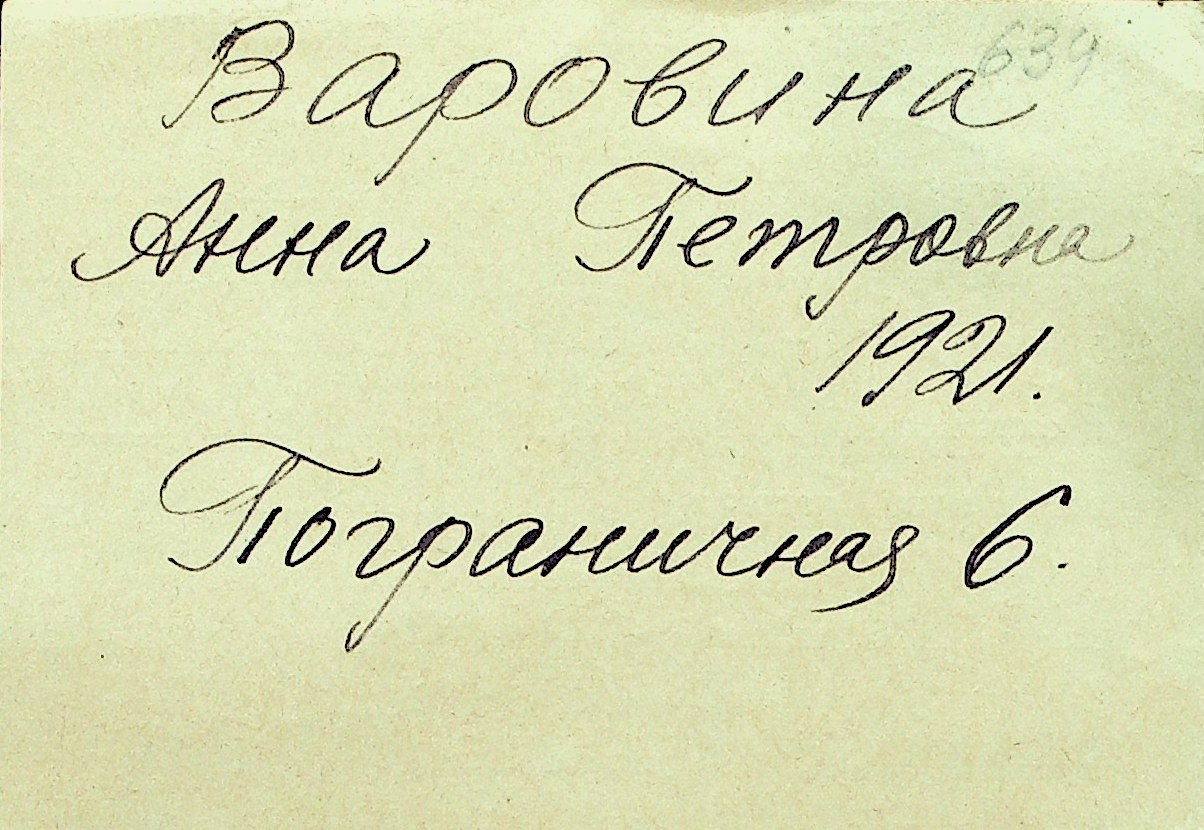 Варовина 639
Анна Петровна
1921.
Пограничная 6.